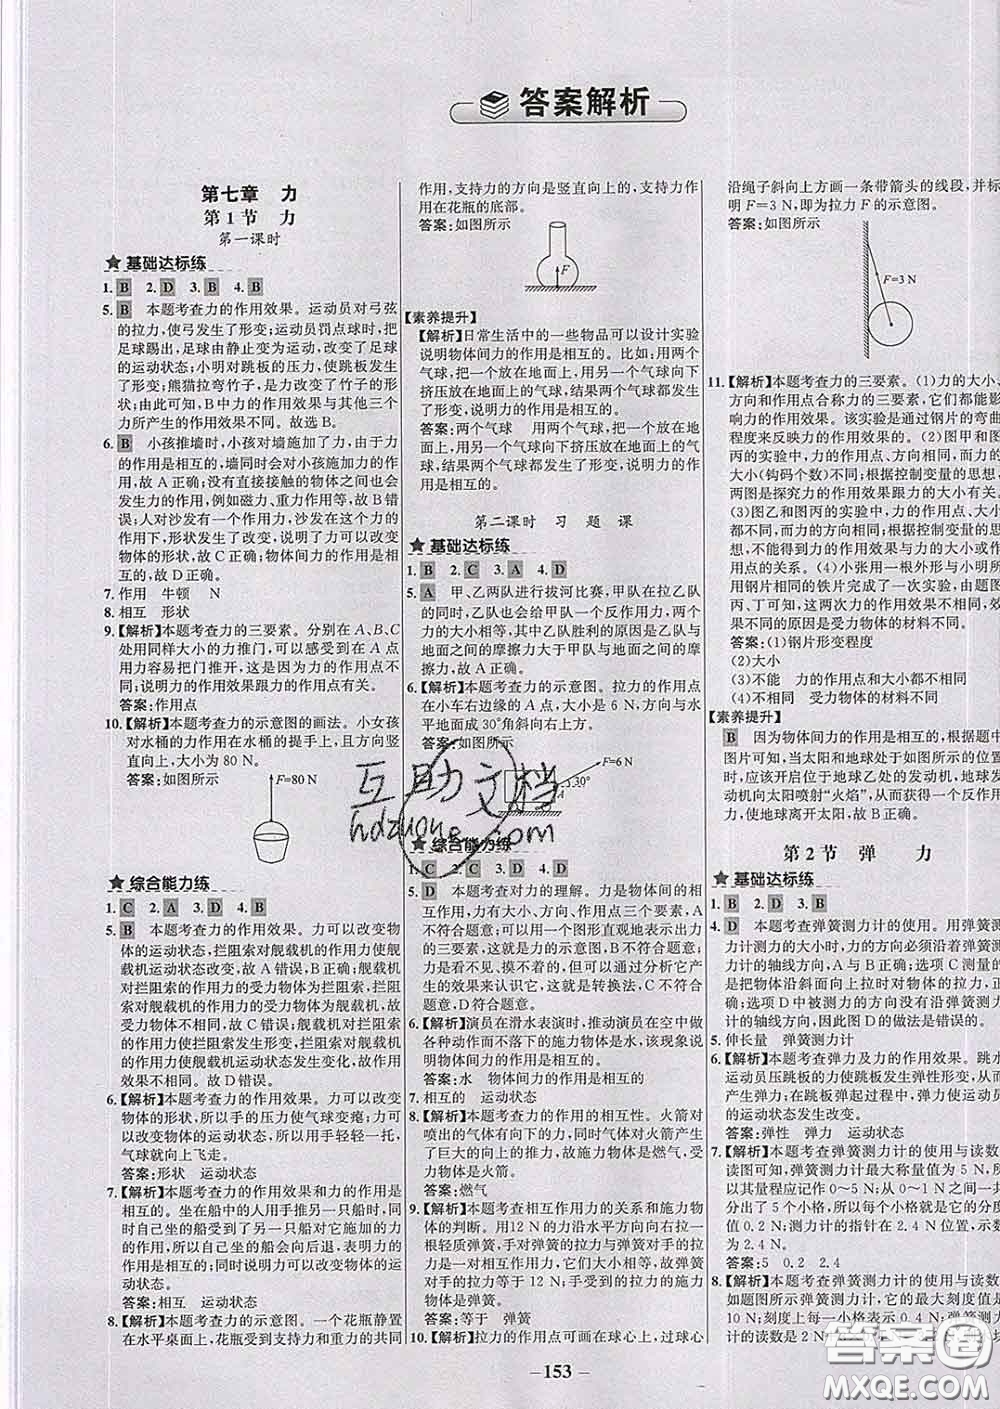 答案解析
第七章 力
第1节 力
第一课时
基础达标练
1. B 2. D 3. B 4. B
5. B 本题考查力的作用效果。运动员对弓弦
的拉力,使弓发生了形变;运动员罚点球时,把
足球踢出,足球由静止变为运动,改变了足球
的运动状态;小明对跳板的压力,使跳板发生
了形变;熊猫拉弯竹子,是力改变了竹子的形
状。由此可知,B中力的作用效果与其他三个
力所产生的作用效果不同。故选B。
6. B 小孩推墙时,小孩对墙施加了力,由于力
的作用是相互的,墙同时会对小孩施加力的作
用,故A正确;没有直接接触的物体之间也会
发生力的作用,例如磁力、重力作用等,故B错
误;人对沙发有一个作用力,沙发在这个力的
作用下,形状发生了变化,说明了力可以改变
物体的形状,故C正确;物体间力的作用是相
互的,故D正确。
7. 作用 牛顿 N
8. 相互 形状
9.【解析】本题考查力的三要素。分别在A、B、C
处用同样大小的力推门,可以感受到在A点
用力容易把门推开,这是因为力的作用点不
同;说明力的作用效果跟力的作用点有关。
答案:作用点
10.【解析】本题考查力的示意图的画法。小女孩
对水桶的力作用在水桶的提手上,且方向竖
直向上,大小为80 N。
答案:如图所示
F=80 N
综合能力练
1. C 2. A 3. D 4. B
5. B 本题考查力的作用效果。力可以改变物
体的运动状态,拦阻索对舰载机的力使舰载
机运动状态改变,故A错误,B正确;舰载机
对拦阻索的作用力的受力物体为拦阻索,拦阻
索对舰载机的作用力的受力物体为舰载机,故
C错误;舰载机的力对拦阻索
的力使拦阻索发生形变,拦阻索对舰载机的
力使舰载机运动状态发生变化,故作用
效果不同,故D错误。
6.【解析】本题考查力的作用效果。力可以改变
物体的形状,所以手的压力使气球变瘪;力可
以改变物体的运动状态,所以用手轻轻一托,
气球就向上飞走。
答案:形状 运动状态
7.【解析】本题考查力的作用效果和力的作用是
相互的。坐在船中的人用手推另一只船时,同
时自己坐的船受到了另一只船对它施加的力
的作用,所以自己坐的船会向后退,表明力的
作用是相互的;同时也说明力可以改变物体的
运动状态。
答案:相互 运动状态
8.【解析】本题考查力的示意图。一个花瓶静置
在水平桌面上,花瓶受到支持力和重力的共同
作用,支持力的方向是竖直向上的,支持力作
用在花瓶的底部。
答案:如图所示
F
【素养提升】
【解析】日常生活中的一些物品可以设计实验
说明物体间力的作用是相互的。比如:用两个
气球,把一个放在地面上,用另一个气球向下
挤压放在地面上的气球,结果两个气球都发生
了形变,说明力的作用是相互的。
答案:两个气球 用两个气球,把一个放在地
面上,用另一个气球向下挤压放在地面上的气
球,结果两个气球都发生了形变,说明力的作用
是相互的。
第二课时 习题课
基础达标练
1. B 2. C 3. A 4. D
5. A 甲、乙两队进行拔河比赛,甲队在拉乙队
时,乙队也会给甲队一个反作用力,两个
力的大小相等,其中乙队胜利的原因是乙队
与地面之间的摩擦力大于甲队与地面之间的摩
擦力,故A正确。
6.【解析】本题考查力的示意图。拉力的作用点
在小车右边缘的A点,大小是6 N,方向与水
平地面成30°角斜向右上方。
答案:如图所示
F=6 N
30°
A
综合能力练
1. C 2. C 3. D 4. D
5. D 本题考查对力的理解。力是物体间的相
互作用,力有大小、方向、作用点三个要素,A不
符合题意;可以用一个图形直观地表示出力
的三要素,这就是力的示意图,B不符合题意;力
是看不见、摸不着的,但可以通过分析它产
生的效果来认识它,这就是转换法,C不
符合题意,D符合题意。
6.【解析】演员在滑水表演时,推动演员在空中做
各种动作而不落下的施力物体是水,该现象说
明物体间力的作用是相互的。
答案:水 物体间力的作用是相互的
7. 相互的 运动状态
8.【解析】本题考查力的作用的相互性。火箭对
喷出的气体有向下的力,同时气体对火箭产生
了巨大的向上的推力,故施力物体是燃气,受
力物体是火箭。
答案:燃气
9.【解析】本题考查相互作用力的关系和施力物
体的判断。用12 N的力沿水平方向向右拉一
根轻质弹簧,弹簧对手的拉力与弹簧对手的拉力
是一对相互作用力,它们大小相等,故弹簧
对手的拉力等于12 N;手受到的拉力的施力
物体是弹簧。
答案:等于 弹簧
10.【解析】拉力的作用点可画在球心上,过球心
沿绳子斜向上方画一条带箭头的线段,并标
明F=3 N,即为拉力F的示意图。
答案:如图所示
F=3 N
11.【解析】本题考查力的三要素。(1)力的大小、
方向和作用点合称力的三要素,它们都能影
响力的作用效果。该实验是通过钢片的弯曲
程度来反映力的作用效果的。(2)图甲和图
丙的实验中,力的作用点、方向相同,而力的
大小(钩码个数)不同;根据控制变量的思想,
两图是探究力的作用效果与力的大小有关。
(3)图乙和图丙的实验中,力的大小和作用点
都不同,而力的方向相同;根据控制变量的思
想,不能研究力的作用效果与力的大小或作
用点的关系。(4)小张用一根外形与小明所
用钢片相同的铁片完成了一次实验,由题图
丙、丁可知,力的作用效果不相同,造成作用
效果不同的原因是受力物体的材料不同。
答案:(1)钢片形变程度
(2)大小
(3)不能 力的作用点和大小都不相同
(4)不相同 受力物体的材料不同
【素养提升】
B 因为物体间力的作用是相互的,根据题中
可知,当太阳和地球处于如图所示的位置
时,应该开启位于地球乙处的发动机,地球发
动机向太阳喷射“火焰”,会获得一个反作用力
使地球离开太阳,故B正确。
第2节 弹 力
基础达标练
1. B 2. D 3. B
4. D 本题考查弹簧测力计的使用。用弹簧测
力计测力的大小时,力的方向必须沿着弹簧测
力计的轴线方向,A与B正确;选项C测量的
是把物体沿斜面向上拉时对物体的拉力,正
确;选项D中被测力的方向没有沿弹簧测力
计的轴线方向,因此图D的做法是错误的。
5. 伸长量 弹簧测力计
6.【解析】本题考查弹力及力的作用效果。跳水
运动员压跳板的力使跳板发生弹性形变,从而
产生弹力;在跳板弹起过程中,弹力使运动员
的运动状态发生改变。
答案:弹性 弹力 运动状态
7.【解析】本题考查弹簧测力计的使用与读数。
读图可知,弹簧测力计最大称量值为5 N,所
以其量程应记作0~5 N;从0~1 N,共
分出了5个小格,所以每个小格代表的分度
值0.2 N;测力计的指针在2.4 N位置,示数
为2.4 N。
答案:5 0.2 2.4
8.【解析】本题考查弹簧测力计的使用与读数。
如题图所示弹簧测力计的
10 N;刻度上每一小格表示0.4 N;
计的读数是2 N
– 153 –
互助文档
hdzuoye.com
答案圈
MXQE.COM